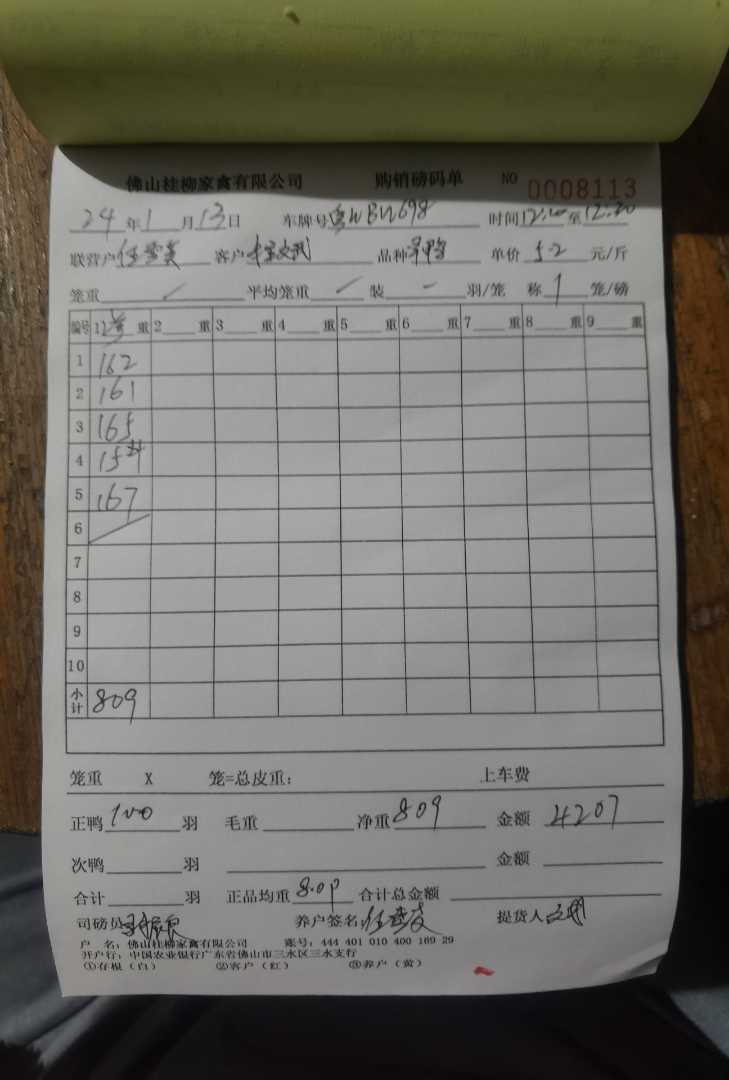 佛山桂柳家禽有限公司 购销磅码单 NO 0008113
24年1月13日 车牌号粤WBW698 时间12:10至12:20
联营户 客户 品种 单价5.2元/斤
笼重 / 平均笼重 / 装 - 羽/笼 称 1 笼/磅
编号 1 重 2 重 3 重 4 重 5 重 6 重 7 重 8 重 9 重
1 162
2 161
3 165
4 154
5 167
6 /
7
8
9
10
小计 809
笼重 X 笼=总皮重: 上车费
正鸭 100 羽 毛重 净重 809 金额 4207
次鸭 羽 金额
合计 羽 正品均重 8.09 合计总金额
司磅员 养户签名: 提货人
户 名: 佛山桂柳家禽有限公司 账号: 444 401 010 400 169 29
开户行: 中国农业银行广东省佛山市三水区三水支行
①存根(白) ②客户(红) ③养户(黄)